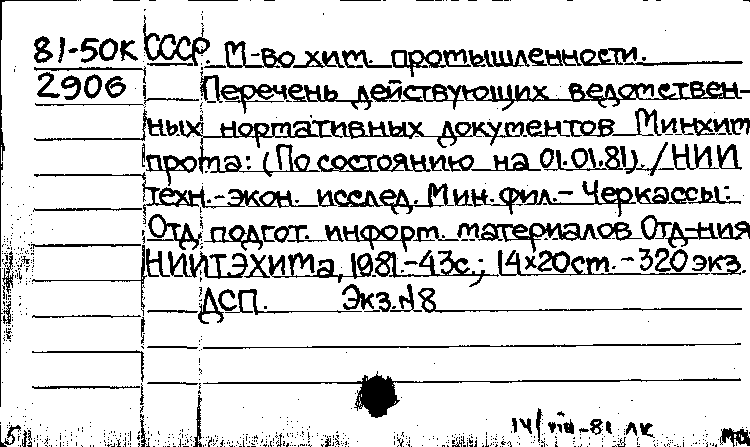 81-50К СССР. М-во хим. промышленности.
2906 Перечень действующих ведомствен-
ных нормативных документов Минхим
прома: (По состоянию на 01.01.81). / НИИ
техн.-экон. исслед. Мин. фил. - Черкассы:
Отд. подгот. информ. материалов Отд-ния
НИИТЭХИМа, 1981. - 43с.; 14х20см. - 320 экз.
ДСП. Экз. №8
14/VIII-81 ЛК